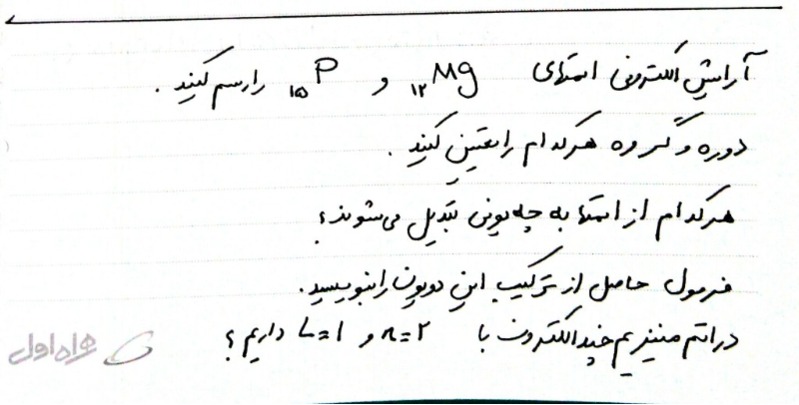 آرایش الکترونی اتمهای ₁₂Mg و ₁₅P را رسم کنید .
دوره و گروه هرکدام را تعیین کنید .
هرکدام از اتمها به چه یونی تبدیل می‌شوند ؟
فرمول حاصل از ترکیب این دو یون را بنویسید .
در اتم منیزیم چند الکترون با n=۲ و L=۱ داریم ؟
همراه اول